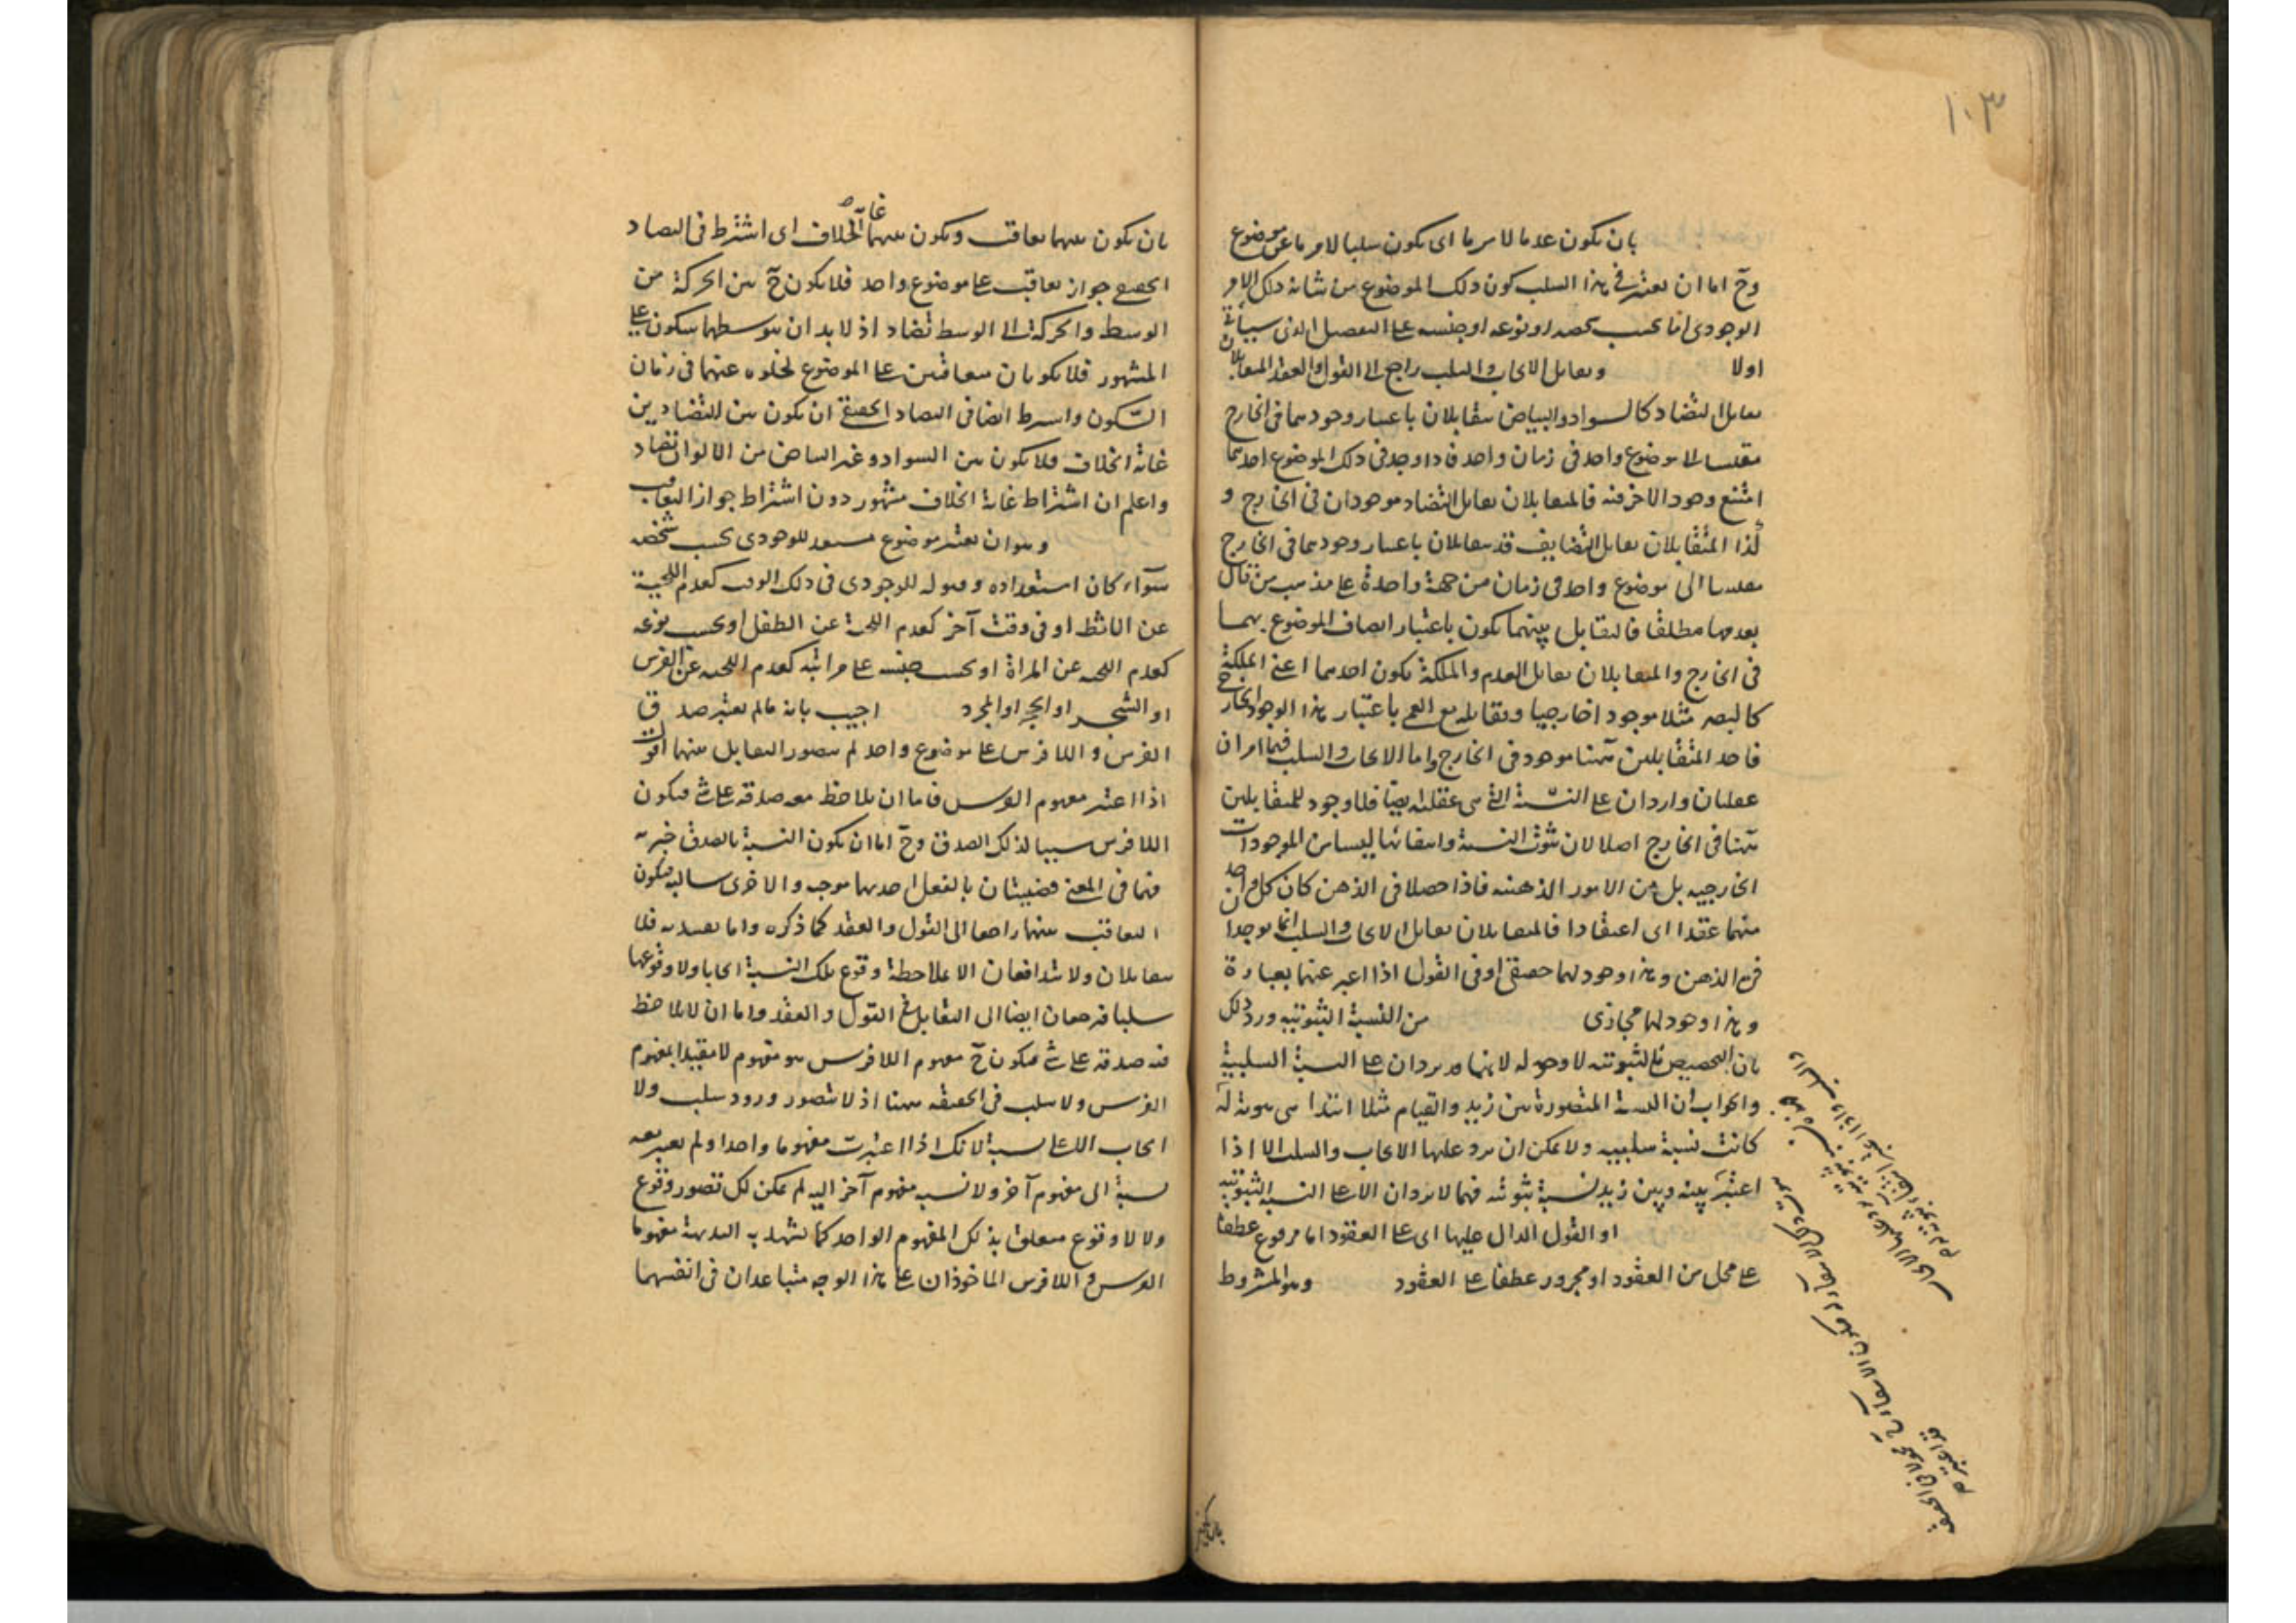 ١٠٣
بان يكون عدما لامر ما اى يكون سلبا لامر ما عن موضوع
وح اما ان يعتبر فى هذا السلب كون ذلك الموضوع من شانه ذلك الامر
الوجودى اما بحسب شخصه او نوعه او جنسه على التفصيل الذى سيأتى
اولا ويقابل الايجاب والسلب راجع الى القول والعقد المتقابلان
تقابل التضاد كالسواد والبياض يتقابلان باعتبار وجودهما فى الخارج
مقيسا الى موضوع واحد فى زمان واحد فاذا وجد فى ذلك الموضوع احدهما
امتنع وجود الاخر فيه فالمتقابلان تقابل التضاد موجودان فى الخارج و
كذا المتقابلان تقابل التضايف قد يتقابلان باعتبار وجودهما فى الخارج
مقيسا الى موضوع واحد فى زمان من جهة واحدة على مذهب من قال
بعدمها مطلقا فالتقابل بينهما يكون باعتبار اتصاف الموضوع بهما
فى الخارج والمتقابلان تقابل العدم والملكة يكون احدهما اعنى الملكة
كالبصر مثلا موجودا خارجيا وتقابله مع العمى باعتبار هذا الوجود الخارجى
فاحد المتقابلين ههنا موجود فى الخارج واما الايجاب والسلب فهما امران
عقليان واردان على النسبة التى هى عقلية ايضا فلا وجود للمتقابلين
ههنا فى الخارج اصلا لان ثبوت النسبة وانتفائها ليسا من الموجودات
الخارجيه بل من الامور الذهنيه فاذا حصلا فى الذهن كان كل واحد
منهما عقدا اى اعتقادا فالمتقابلان تقابل الايجاب والسلب انما يوجدان
فى الذهن وهذا وجود لهما حقيقى او فى القول اذا عبر عنهما بعبارة
وهذا وجود لهما مجازى من النسبة الثبوتيه ورد ذلك
بان التخصيص بالثبوتيه لا وجه له لانهما يردان على النسبة السلبية
والجواب ان النسبة المتصورة بين زيد والقيام مثلا ابتداء هى ثبوته له
كانت نسبة سلبيه ولا يمكن ان يرد عليها الايجاب والسلب الا اذا
اعتبر بينه وبين زيد نسبة ثبوتيه فهما لا يردان الا على النسبة الثبوتيه
او القول الدال عليها اى على العقود اما مرفوع عطفا
على محل من العقود او مجرور عطفا على العقود وهو المشروط
بان يكون بينهما تعاقب ويكون بينهما غاية الخلاف اى اشترط فى التضاد
الحقيقى جواز تعاقب على موضوع واحد فلا يكون ح بين الحركة من
الوسط والحركة الى الوسط تضاد اذ لا بد ان يتوسطهما سكون على
المشهور فلا يكونان متعاقبين على الموضوع لخلوه عنهما فى زمان
السكون واشترط ايضا فى التضاد الحقيقى ان يكون بين المتضادين
غاية الخلاف فلا يكون بين السواد وغير البياض من الالوان تضاد
واعلم ان اشتراط غاية الخلاف مشهور دون اشتراط جواز التعاقب
وهو ان يعتبر موضوع مستعد للوجودى بحسب شخصه
سوآء كان استعداده وقبوله للوجودى فى ذلك الوقت كعدم اللحية
عن الاثط او فى وقت آخر كعدم اللحية عن الطفل او بحسب نوعه
كعدم اللحيه عن المراة او بحسب جنسه على مراتبه كعدم اللحيه عن الفرس
او الشجر او الحجر او المجرد اجيب بانه ما لم يعتبر صدق
الفرس واللا فرس على موضوع واحد لم يتصور التقابل بينهما اقول
اذا اعتبر مفهوم الفرس فاما ان يلاحظ معه صدقه على شئ فيكون
اللا فرس سلبا لذلك الصدق وح اما ان يكون النسبة بالصدق خبريه
فهما فى المعنى قضيتان بالفعل احدهما موجبه والاخرى سالبه فيكون
التعاقب بينهما راجعا الى القول والعقد كما ذكره واما تقييديه فلا
يتقابلان ولا يتدافعان الا بملاحظة وقوع تلك النسبة ايجابا ولا وقوعها
سلبا فيرجعان ايضا الى التقابل فى القول والعقد واما ان لا يلاحظ
فيه صدقه على شئ فيكون ح مفهوم اللا فرس هو مفهوم لا مقيدا بمفهوم
الفرس ولا سلب فى الحقيقه ههنا اذ لا يتصور ورود سلب ولا
ايجاب الا على نسبة لانك اذا اعتبرت مفهوما واحدا ولم تعتبر معه
نسبة الى مفهوم آخر ولا نسبه مفهوم آخر اليه لم يمكن لك تصور وقوع
ولا لا وقوع متعلق بذلك المفهوم الواحد كما يشهد به البديهة مفهوما
الفرس واللا فرس الماخوذان على هذا الوجه متباعدان فى انفسهما